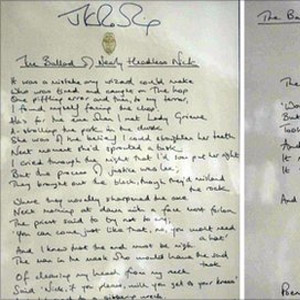 JKRowling
The Ballad of Nearly Headless Nick
It was a mistake any wizard could make
Who was tired and caught on The hop
One piffling error and then, to my terror,
I found myself facing the chop.
Alas for the eve when I met Lady Grieve
A-strolling the park in the dusk
She was of the belief I could straighten her teeth
Next moment she'd sprouted a tusk
I cried through the night that I'd soon put her right
But the process of justice was lax;
They brought out the block, though they'd mislaid
the rock
Where they usually sharpened the axe
Next morning at dawn with a face most forlorn
The priest said to try not to cry,
'You can come just like that, no, you won't need
a hat'
And I knew that the end must be nigh
The man in the mask who would have the sad
task
Of cleaving my head from my neck
Said 'Nick, if you please, will you get to your knees'
The Ba
'W
But
Too
And
It
It
An
Poe